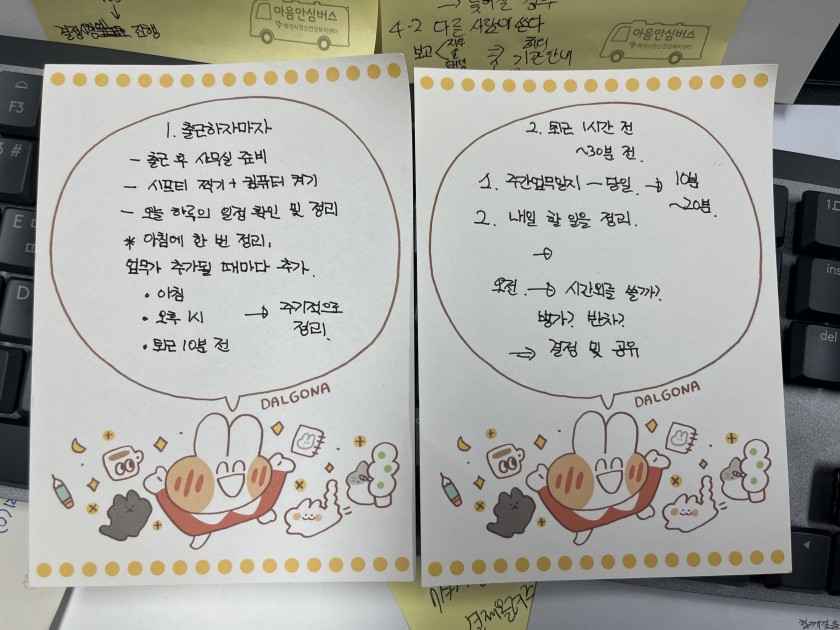 진행
마음안심버스
화성시정신건강복지센터
4-2 다른 사람이 쓴다
보고
기관안내
마음안심버스
화성시정신건강복지센터
1. 출근하자마자
- 출근 후 사무실 준비
- 시프티 찍기 + 컴퓨터 켜기
- 오늘 하루의 일정 확인 및 정리
* 아침에 한 번 정리,
업무가 추가될 때마다 추가.
• 아침
• 오후 1시 → 주기적으로
정리.
• 퇴근 10분 전
DALGONA
2. 퇴근 1시간 전
~30분 전.
1. 주간업무일지 - 당일. → 10분
~20분.
2. 내일 할 일을 정리.
→
오전. → 시간외를 쓸까?
병가? 반차?
⇒ 결정 및 공유
DALGONA
F3
# 3
E
D
ins
del